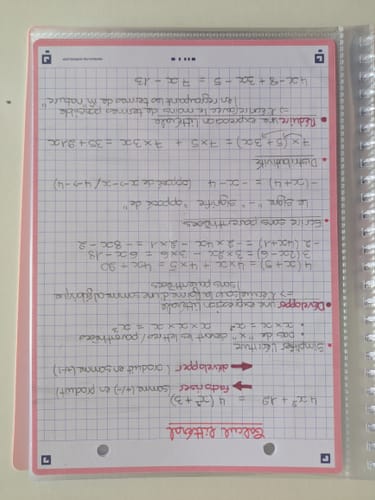 Calcul littéral
4x² + 12 = 4 (x² + 3)
← factoriser (somme (+/-) en produit)
→ développer (produit en somme (+/-))
• Simplifier l'écriture
• pas de "x" devant les lettres / parenthèses
• x × x = x² x × x × x = x³
• Développer une expression littérale
=> L'écrire sous la forme d'une somme algébrique
(sans parenthèses)
4 (x + 5) = 4 × x + 4 × 5 = 4x + 20
3 (2x - 6) = 3 × 2x - 3 × 6 = 6x - 18
- 2 (4x + 1) = - 2 × 4x - 2 × 1 = - 8x - 2
• Ecrire sans parenthèses
Le signe "-" signifie "opposé de"
- (x + 4) = - x - 4 (opposé de x -> -x / 4 -> -4)
• Distributivité
7 × (5 + 3x) = 7 × 5 + 7 × 3x = 35 + 21x
• Réduire une expression littérale
=> L'écrire avec le moins de termes possible
(en regroupant les termes de m̂ nature)
4x - 8 + 3x - 5 = 7x - 13